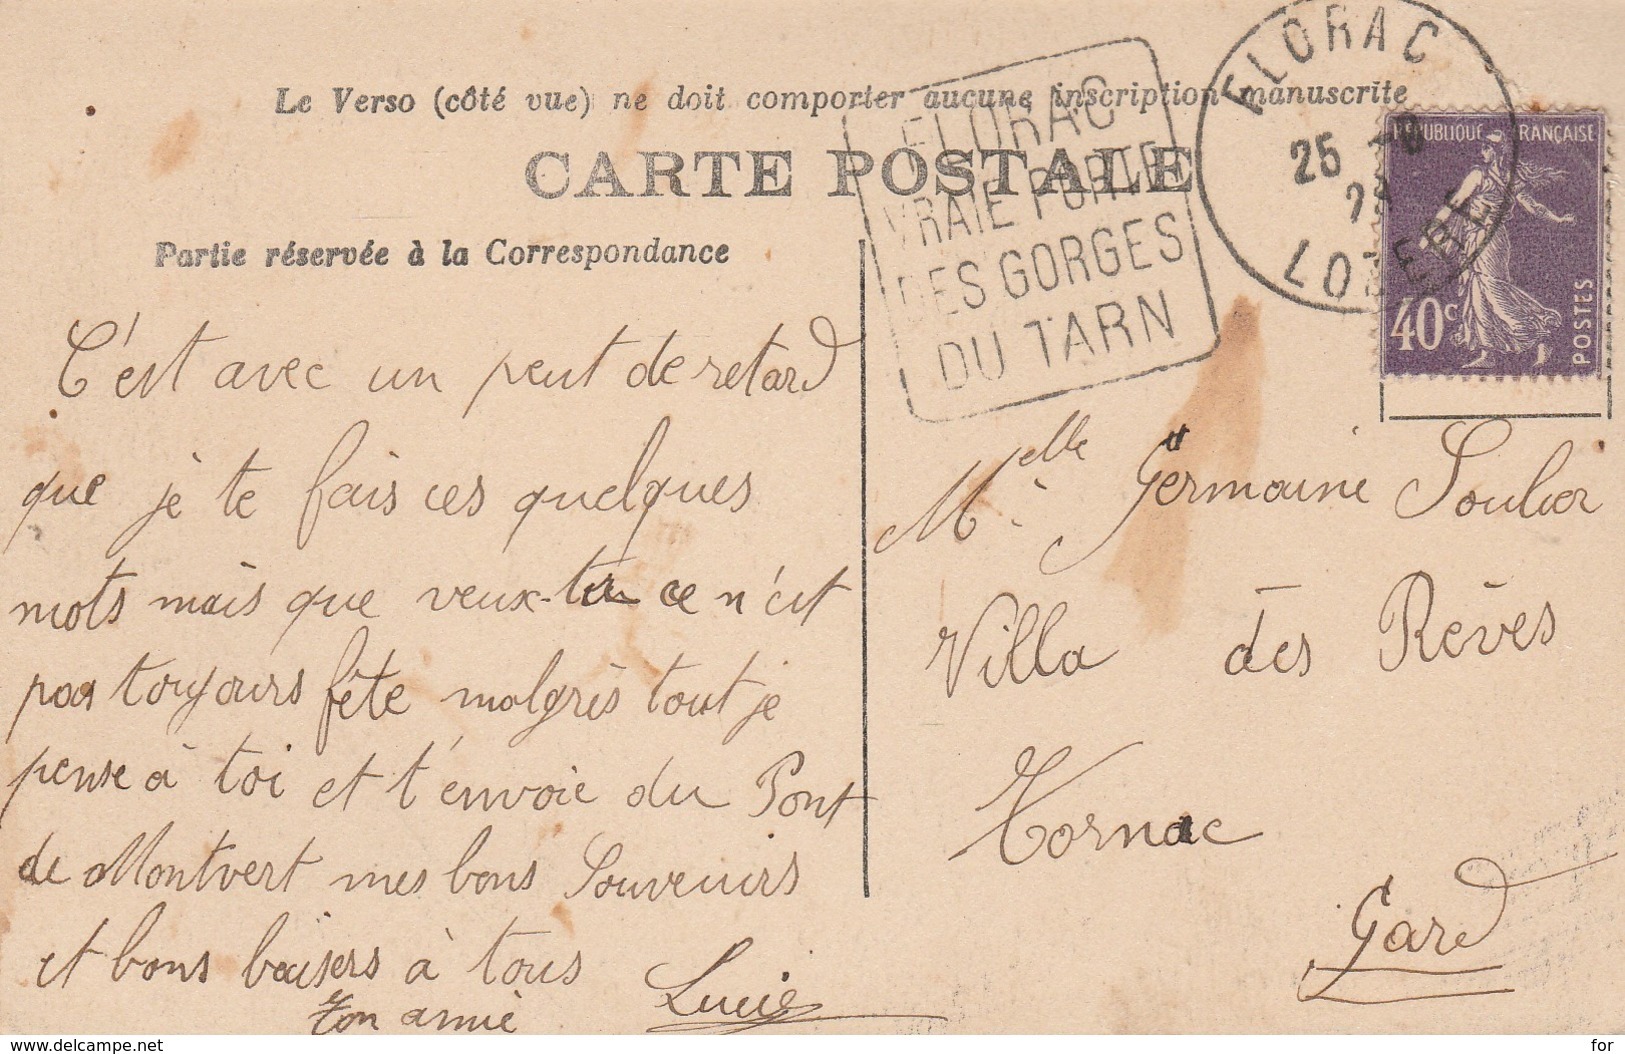 Le Verso (côté vue) ne doit comporter aucune inscription manuscrite
CARTE POSTALE
Partie réservée à la Correspondance
FLORAC
VRAIE PORTE
DES GORGES
DU TARN
FLORAC
25
LOZERE
REPUBLIQUE FRANÇAISE
40c
POSTES
C'est avec un peut de retard
que je te fais ces quelques
mots mais que veux-tu ce n'est
pas toujours fête malgrès tout je
pense à toi et t'envoie du Pont
de Montvert mes bons Souvenirs
et bons baisers à tous
Ton amie Lucie
Melle Germaine Soulier
Villa des Rêves
Tornac
Gard
www.delcampe.net
for